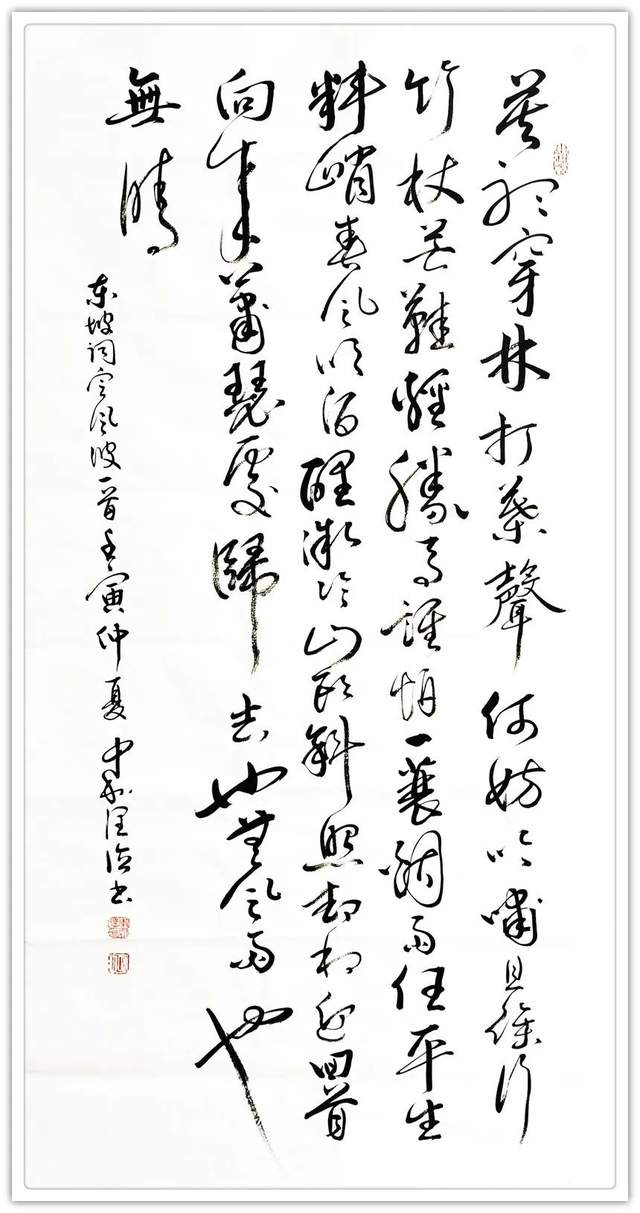 莫聽穿林打葉聲何妨吟嘯且徐行
竹杖芒鞋輕勝馬誰怕一蓑烟雨任平生
料峭春風吹酒醒微冷山頭斜照却相迎回首
向來蕭瑟處歸去也無風雨也
無晴
东坡词定風波一首壬寅仲夏中书